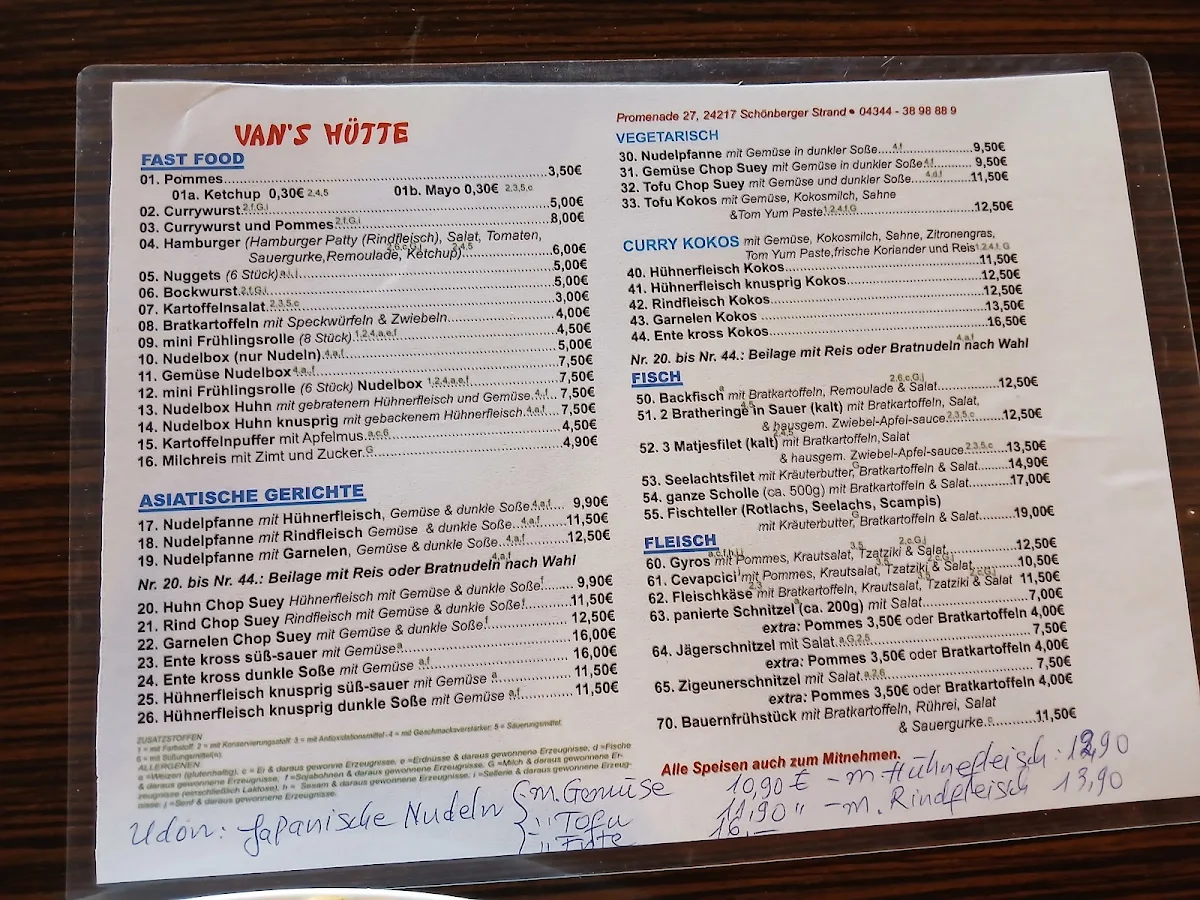 VAN'S HÜTTE
FAST FOOD
01. Pommes 3,50€
01a. Ketchup 0,30€ 2,4,5 01b. Mayo 0,30€ 2,3,5,c
02. Currywurst 2,f,G,i 5,00€
03. Currywurst und Pommes 2,f,G,i 8,00€
04. Hamburger (Hamburger Patty (Rindfleisch), Salat, Tomaten,
Sauergurke,Remoulade, Ketchup) 6,00€
05. Nuggets (6 Stück) 5,00€
06. Bockwurst 2,f,G,i 5,00€
07. Kartoffelsalat 2,3,5,c 3,00€
08. Bratkartoffeln mit Speckwürfeln & Zwiebeln 4,00€
09. mini Frühlingsrolle (8 Stück) 1,2,4,a,e,f 4,50€
10. Nudelbox (nur Nudeln) 4,a,f 5,00€
11. Gemüse Nudelbox 4,a,f 7,50€
12. mini Frühlingsrolle (6 Stück) Nudelbox 1,2,4,a,e,f 7,50€
13. Nudelbox Huhn mit gebratenem Hühnerfleisch und Gemüse 4,f 7,50€
14. Nudelbox Huhn knusprig mit gebackenem Hühnerfleisch 4,a,f 7,50€
15. Kartoffelpuffer mit Apfelmus a,c,6 4,50€
16. Milchreis mit Zimt und Zucker G 4,90€
ASIATISCHE GERICHTE
17. Nudelpfanne mit Hühnerfleisch, Gemüse & dunkle Soße 4,a,f 9,90€
18. Nudelpfanne mit Rindfleisch Gemüse & dunkle Soße 4,a,f 11,50€
19. Nudelpfanne mit Garnelen, Gemüse & dunkle Soße 4,a,f 12,50€
Nr. 20. bis Nr. 44.: Beilage mit Reis oder Bratnudeln 4,a,f nach Wahl
20. Huhn Chop Suey Hühnerfleisch mit Gemüse & dunkle Soße f 9,90€
21. Rind Chop Suey Rindfleisch mit Gemüse & dunkle Soße f 11,50€
22. Garnelen Chop Suey mit Gemüse & dunkle Soße f 12,50€
23. Ente kross süß-sauer mit Gemüse a 16,00€
24. Ente kross dunkle Soße mit Gemüse a,f 16,00€
25. Hühnerfleisch knusprig süß-sauer mit Gemüse a 11,50€
26. Hühnerfleisch knusprig dunkle Soße mit Gemüse a,f 11,50€
ZUSATZSTOFFEN
1 = mit Farbstoff; 2 = mit Konservierungsstoff; 3 = mit Antioxidationsmittel; 4 = mit Geschmacksverstärker; 5 = Säuerungsmittel;
6 = mit Süßungsmittel(n).
ALLERGENEN:
a =Weizen (glutenhaltig), c = Ei & daraus gewonnene Erzeugnisse, e =Erdnüsse & daraus gewonnene Erzeugnisse, d =Fische
& daraus gewonnene Erzeugnisse, f =Sojabohnen & daraus gewonnene Erzeugnisse, G =Milch & daraus gewonnene Er-
zeugnisse (einschließlich Laktose), h = Sesam & daraus gewonnene Erzeugnisse, i =Sellerie & daraus gewonnene Erzeug-
nisse; j =Senf & daraus gewonnene Erzeugnisse.
Promenade 27, 24217 Schönberger Strand • 04344 - 38 98 88 9
VEGETARISCH
30. Nudelpfanne mit Gemüse in dunkler Soße 4,f 9,50€
31. Gemüse Chop Suey mit Gemüse in dunkler Soße 4,f 9,50€
32. Tofu Chop Suey mit Gemüse und dunkler Soße 4,a,f 11,50€
33. Tofu Kokos mit Gemüse, Kokosmilch, Sahne
&Tom Yum Paste 1,2,4,f,G 12,50€
CURRY KOKOS mit Gemüse, Kokosmilch, Sahne, Zitronengras,
Tom Yum Paste,frische Koriander und Reis 1,2,4,f, G
40. Hühnerfleisch Kokos 11,50€
41. Hühnerfleisch knusprig Kokos 12,50€
42. Rindfleisch Kokos 12,50€
43. Garnelen Kokos 13,50€
44. Ente kross Kokos 16,50€
Nr. 20. bis Nr. 44.: Beilage mit Reis oder Bratnudeln 4,a,f nach Wahl
FISCH
50. Backfisch a mit Bratkartoffeln, Remoulade & Salat 2,6,c,G,j 12,50€
51. 2 Bratheringe in Sauer (kalt) mit Bratkartoffeln, Salat,
& hausgem. Zwiebel-Apfel-sauce 2,3,5,c 12,50€
52. 3 Matjesfilet (kalt) mit Bratkartoffeln,Salat
& hausgem. Zwiebel-Apfel-sauce 2,3,5,c 13,50€
53. Seelachtsfilet mit Kräuterbutter, Bratkartoffeln & Salat 14,90€
54. ganze Scholle (ca. 500g) mit Bratkartoffeln & Salat 17,00€
55. Fischteller (Rotlachs, Seelachs, Scampis)
mit Kräuterbutter, Bratkartoffeln & Salat 19,00€
FLEISCH
60. Gyros mit Pommes, Krautsalat, Tzatziki & Salat 12,50€
61. Cevapcici mit Pommes, Krautsalat, Tzatziki & Salat 10,50€
62. Fleischkäse mit Bratkartoffeln, Krautsalat, Tzatziki & Salat 11,50€
63. panierte Schnitzel (ca. 200g) mit Salat 7,00€
extra: Pommes 3,50€ oder Bratkartoffeln 4,00€
64. Jägerschnitzel mit Salat a,G,2,5 7,50€
extra: Pommes 3,50€ oder Bratkartoffeln 4,00€
65. Zigeunerschnitzel mit Salat a,2,6 7,50€
extra: Pommes 3,50€ oder Bratkartoffeln 4,00€
70. Bauernfrühstück mit Bratkartoffeln, Rührei, Salat
& Sauergurke 11,50€
Alle Speisen auch zum Mitnehmen.
Udon: Japanische Nudeln { m. Gemüse 10,90 € - m. Hühnerfleisch: 12,90
" Tofu 11,90 " - m. Rindfleisch 13,90
" Ente 16,-